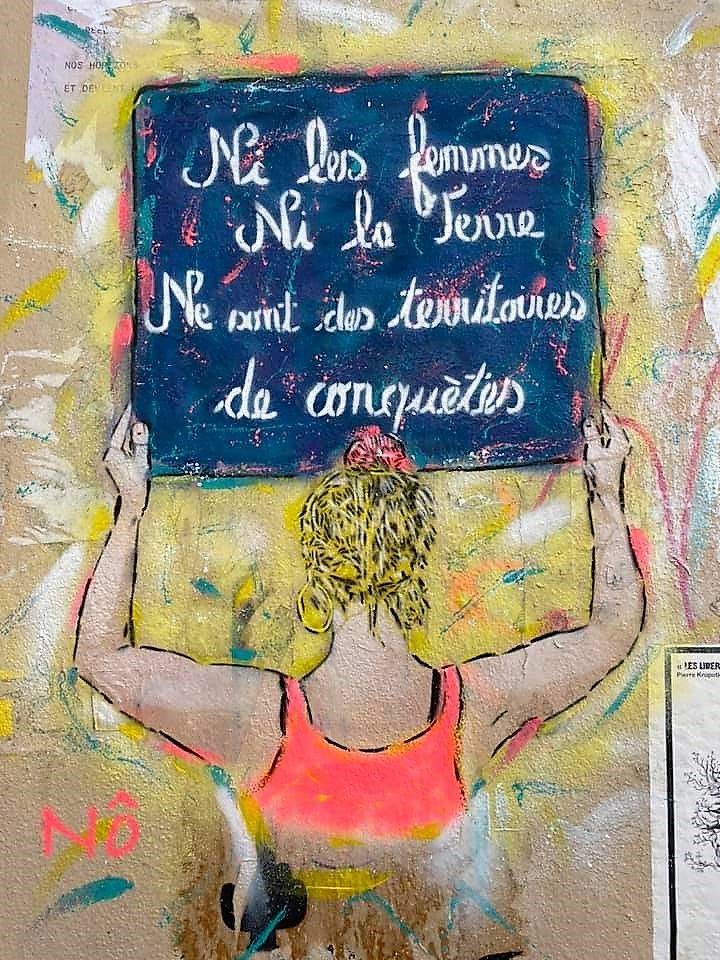 NOS HORIZONS
ET DEVIENT
Ni les femmes
Ni la Terre
Ne sont des territoires
de conquètes
Nô
« LES LIBER
Pierre Kropotk